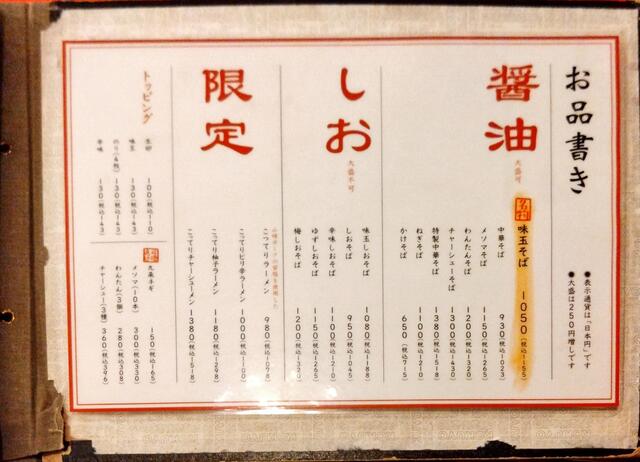 お品書き
●表示通貨は「日本円」です
●大盛は250円増しです
醤油
大盛可
味玉そば 1050(税込1155)
中華そば 930(税込1023)
メンマそば 1150(税込1265)
わんたんそば 1200(税込1320)
チャーシューそば 1300(税込1430)
特製中華そば 1380(税込1518)
ねぎそば 1100(税込1210)
かけそば 650(税込715)
しお
大盛不可
味玉しおそば 1080(税込1188)
しおそば 950(税込1045)
辛味しおそば 1100(税込1210)
ゆずしおそば 1150(税込1265)
梅しおそば 1200(税込1320)
限定
こってりラーメン 980(税込1078)
こってりピリ辛ラーメン 1000(税込1100)
こってり柚子ラーメン 1180(税込1298)
こってりチャーシューメン 1380(税込1518)
トッピング
生卵 100(税込110)
味玉 130(税込143)
のり(4枚) 130(税込143)
辛味 130(税込143)
九条ネギ 150(税込165)
メンマ(10本) 300(税込330)
わんたん(3個) 280(税込308)
チャーシュー(3種) 360(税込396)